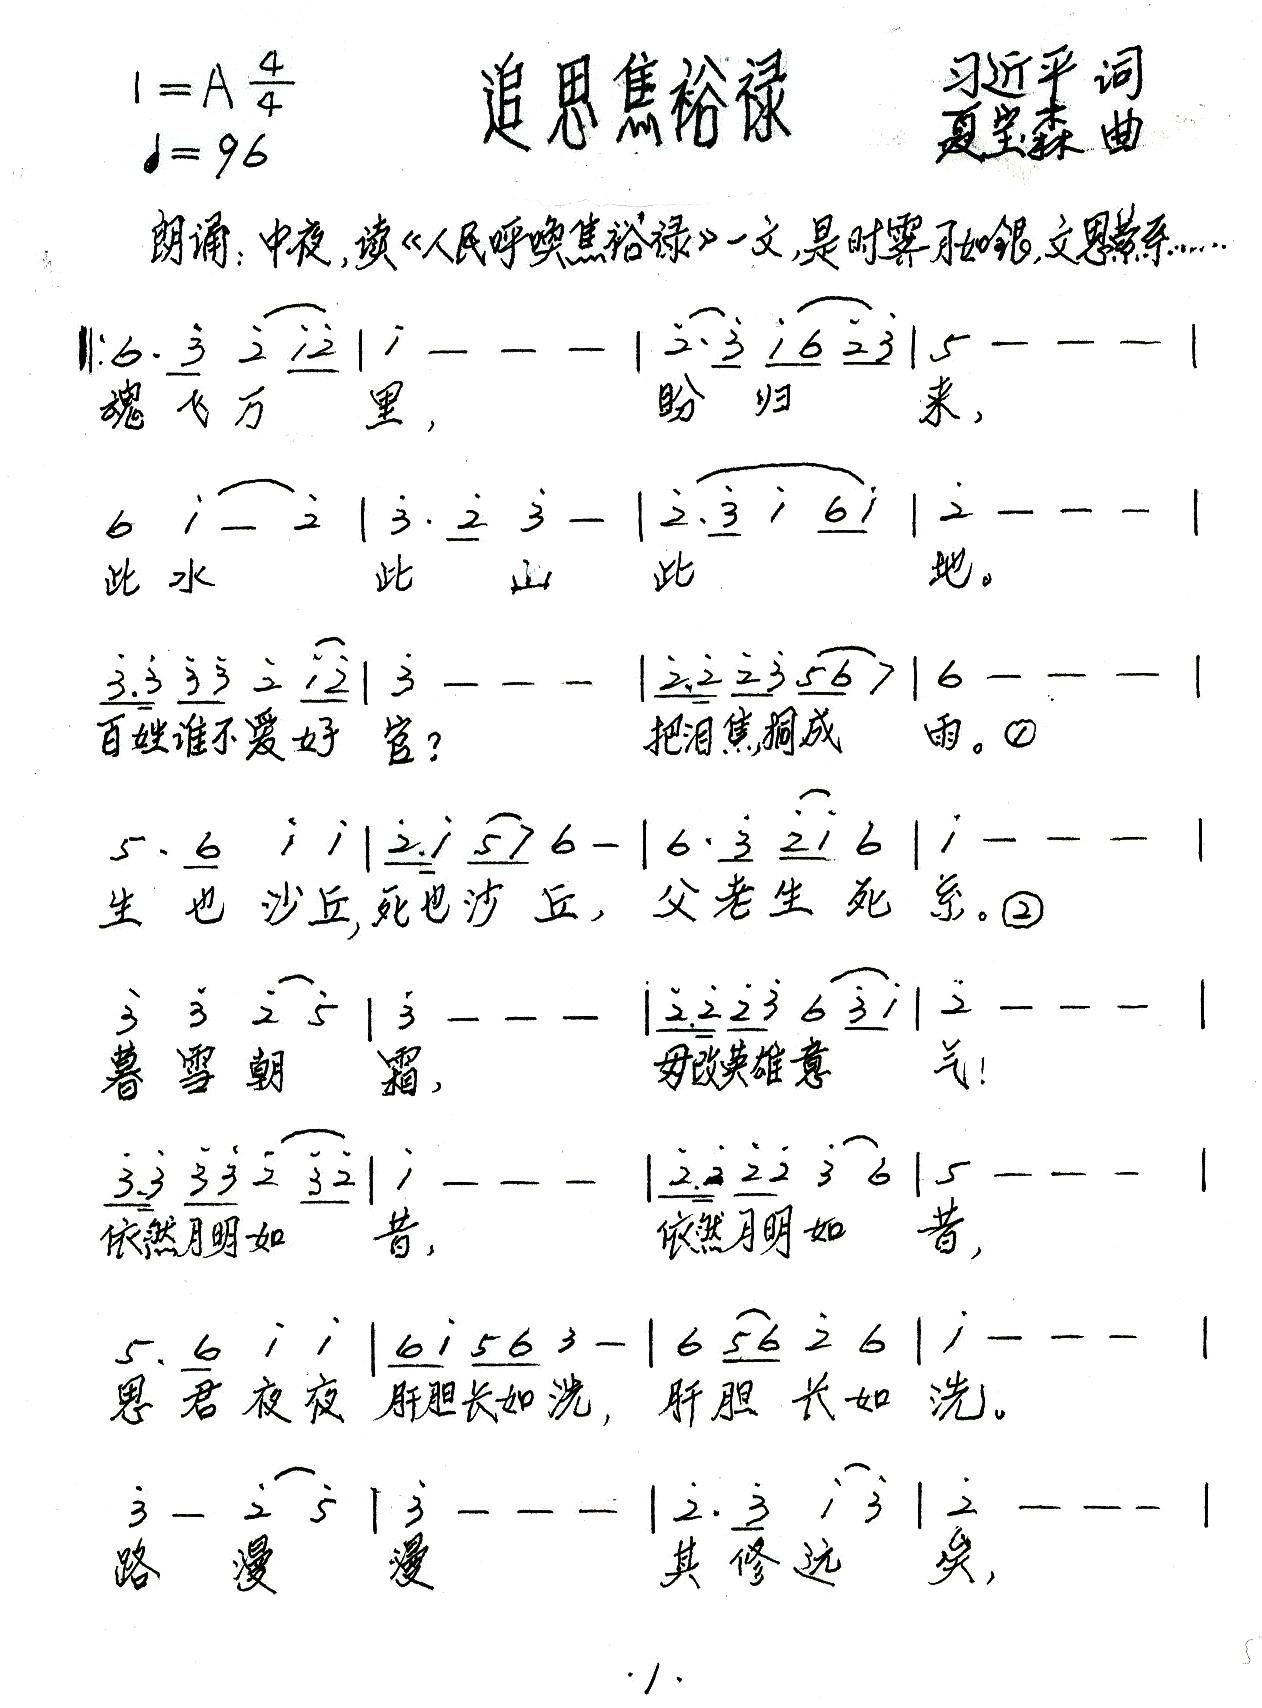 1=A 4/4 追思焦裕禄 习近平 词
♩=96 夏宝森 曲
朗诵：中夜，读《人民呼唤焦裕禄》一文，是时霁月如银，文思萦系……
‖: 6· 3̇ 2̇ 1̇2̇ | 1̇ — — — | 2̇·3̇ 1̇6 2̇3̇ | 5 — — — |
魂飞万里， 盼归来，
6 1̇ — 2̇ | 3̇· 2̇ 3̇ — | 2̇·3̇ 1̇ 61̇ | 2̇ — — — |
此水此山此地。
3̇·3̇ 3̇3̇ 2̇ 1̇2̇ | 3̇ — — — | 2̇·2̇ 2̇3̇ 56 7 | 6 — — — |
百姓谁不爱好官？ 把泪焦桐成雨。①
5· 6 1̇ 1̇ | 2̇·1̇ 57 6 — | 6· 3̇ 2̇1̇ 6 | 1̇ — — — |
生也沙丘，死也沙丘，父老生死系。②
3̇ 3̇ 2̇ 5̇ | 3̇ — — — | 2̇·2̇ 2̇3̇ 6 3̇1̇ | 2̇ — — — |
暮雪朝霜， 毋改英雄意气！
3̇·3̇ 3̇3̇ 2̇ 3̇2̇ | 1̇ — — — | 2̇·2̇ 2̇2̇ 3̇ 6 | 5 — — — |
依然月明如昔， 依然月明如昔，
5· 6 1̇ 1̇ | 61̇ 56 3 — | 6 56 2̇ 6 | 1̇ — — — |
思君夜夜 肝胆长如洗，肝胆长如洗。
3̇ — 2̇ 5̇ | 3̇ — — — | 2̇· 3̇ 1̇ 3̇ | 2̇ — — — |
路漫漫 其修远矣，
·1·